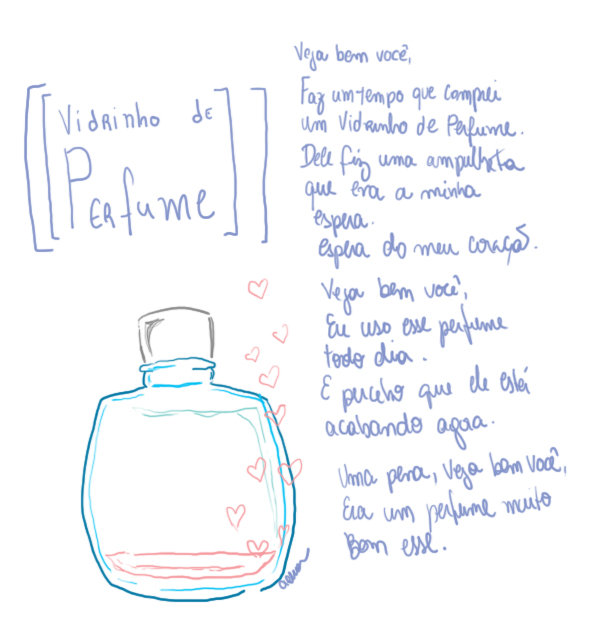 Vidrinho de
Perfume
Veja bem você,
Faz um tempo que comprei
um Vidrinho de Perfume.
Dele fiz uma ampulheta
que era a minha
espera.
espera do meu coração.
Veja bem você,
Eu uso esse perfume
todo dia.
E percebo que ele está
acabando agora.
Uma pena, veja bem você,
Era um perfume muito
Bom esse.